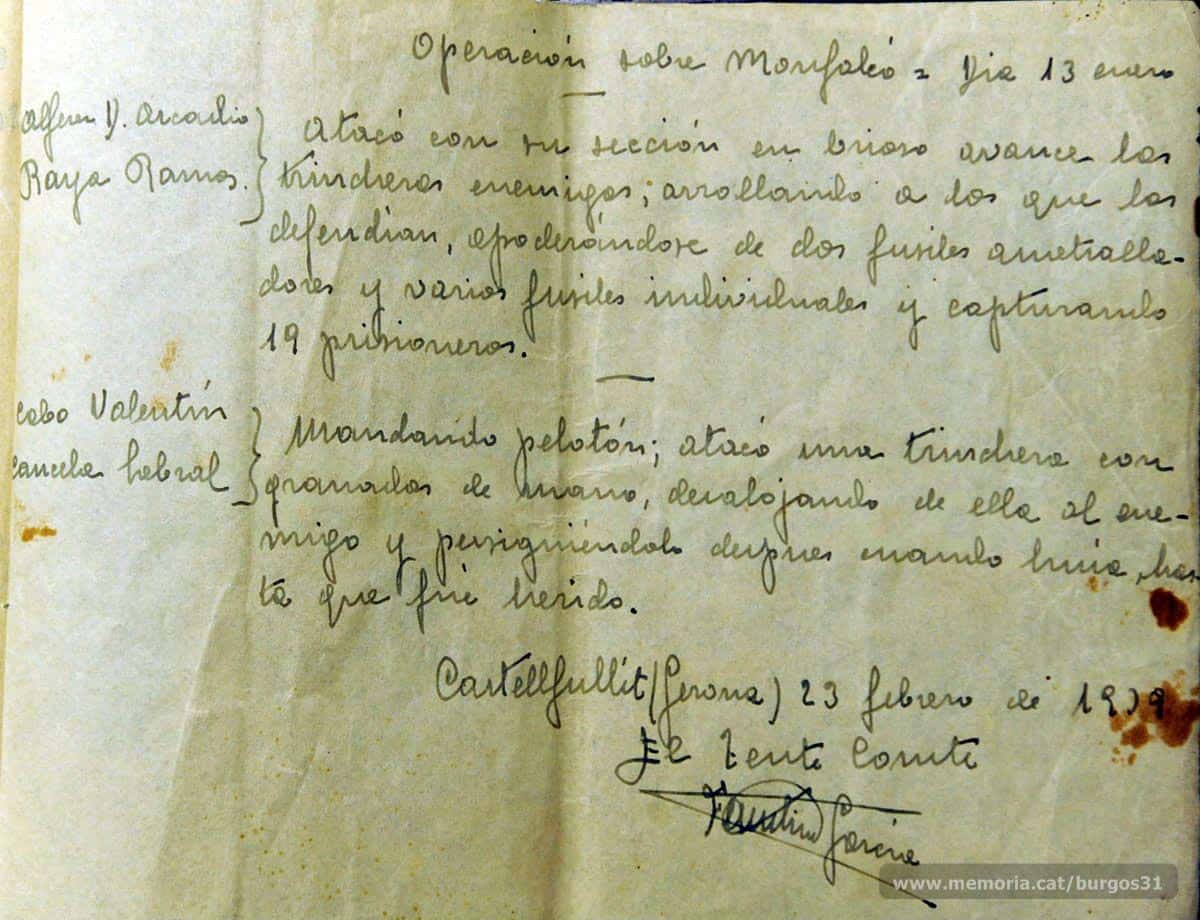 Operación sobre Monfalcó = Dia 13 enero
Alferez D. Arcadio
Raya Ramos.
Atacó con su sección en brioso avance las
trincheras enemigas; arrollando a los que las
defendian, apoderándose de dos fusiles ametralla-
dores y varios fusiles individuales y capturando
19 prisioneros.
Cabo Valentín
Cancela Lobral
Mandando pelotón; atacó una trinchera con
granadas de mano, desalojando de ella al ene-
migo y persiguiéndolo despues cuando huia, has-
ta que fué herido.
Castellfullit (Gerona) 23 febrero de 1939
El Tente Comte
Faustino García
www.memoria.cat/burgos31